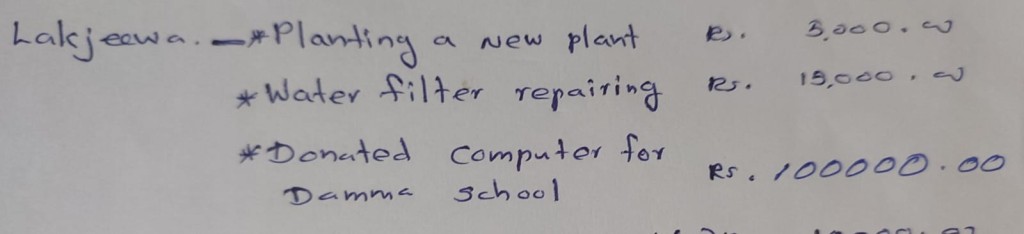 Lakjeewa. - * Planting a new plant Rs. 3,000.00
* Water filter repairing Rs. 15,000.00
* Donated computer for
Damma school Rs. 100000.00